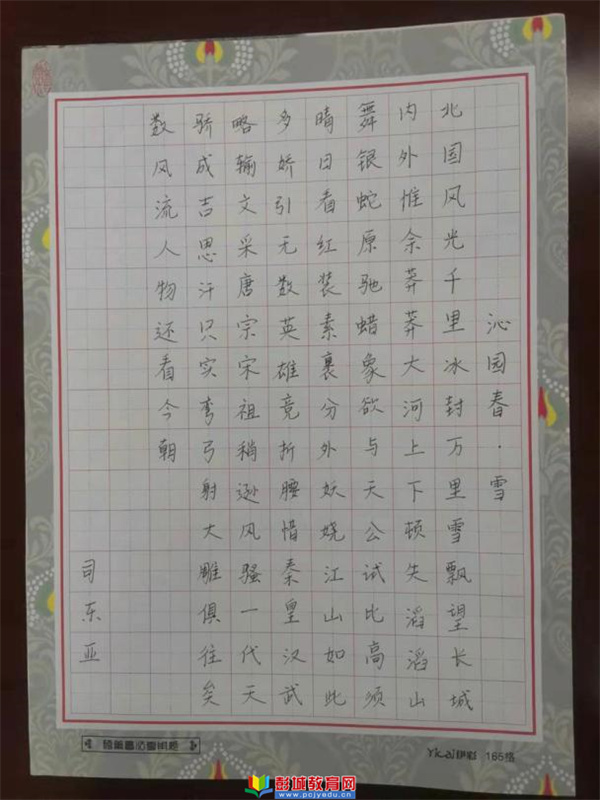 沁园春·雪
北国风光千里冰封万里雪飘望长城
内外惟余莽莽大河上下顿失滔滔山
舞银蛇原驰蜡象欲与天公试比高须
晴日看红装素裹分外妖娆江山如此
多娇引无数英雄竞折腰惜秦皇汉武
略输文采唐宗宋祖稍逊风骚一代天
骄成吉思汗只实弯弓射大雕俱往矣
数风流人物还看今朝
司东亚
165格
彭城教育网
www.pcjyedu.cn